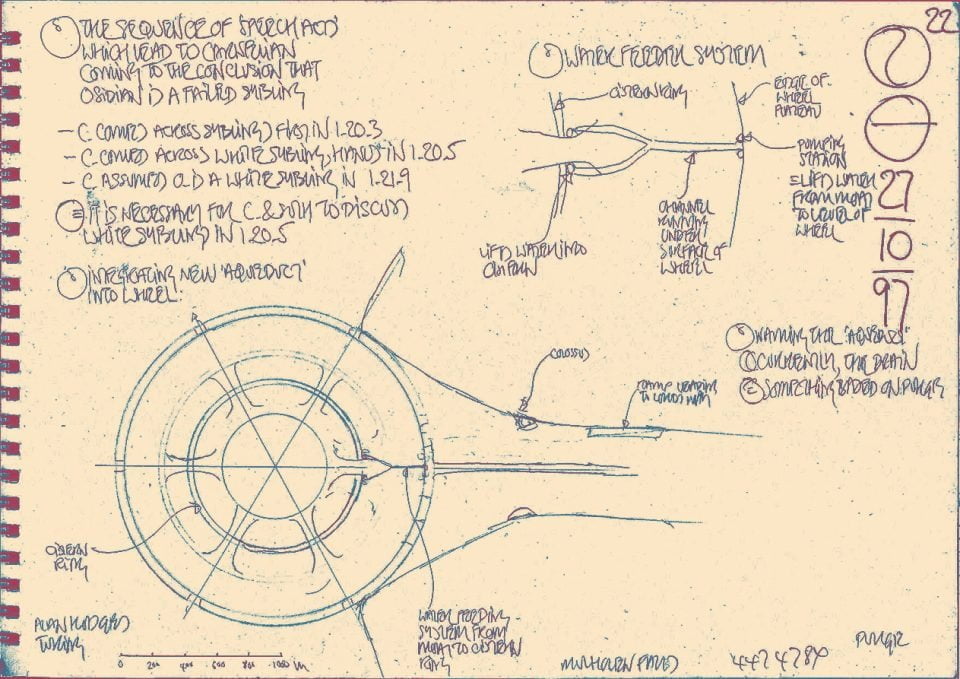 THE SEQUENCE OF 'SPEECH ACTS'
WHICH LEAD TO
COMING TO THE CONCLUSION THAT
OSIDIAN IS A FAILED SIBLING
- C. COMES ACROSS SIBLINGS FIRST IN 1.20.3
- C. COMES ACROSS WHITE SIBLING HANDS IN 1.20.5
- C ASSUMES OLD A WHITE SIBLING IN 1.21.9
IT IS NECESSARY FOR C. & TO DISCUSS
WHITE SIBLINGS IN 1.20.5
INTEGRATING NEW 'AQUEDUCT'
INTO WHEEL:
WATER FEEDER SYSTEM
CISTERN RING
EDGE OF
WHEEL
PLATEAU
PUMPING
STATION
= LIFTS WATER
FROM MOAT
TO LEVEL OF
WHEEL
CHANNEL
RUNNING
UNDER
SURFACE OF
WHEEL
LIFTS WATER INTO
CISTERN
22
27
10
97
NAMING THE
CURRENTLY, THE DRAIN
SOMETHING BASED ON
COLOSSUS
RAMP LEADING
TO
CISTERN
RING
WATER FEEDING
SYSTEM FROM
MOAT TO CISTERN
RING
ALAN HODGES
TURING
0 200 400 600 800 1000 m